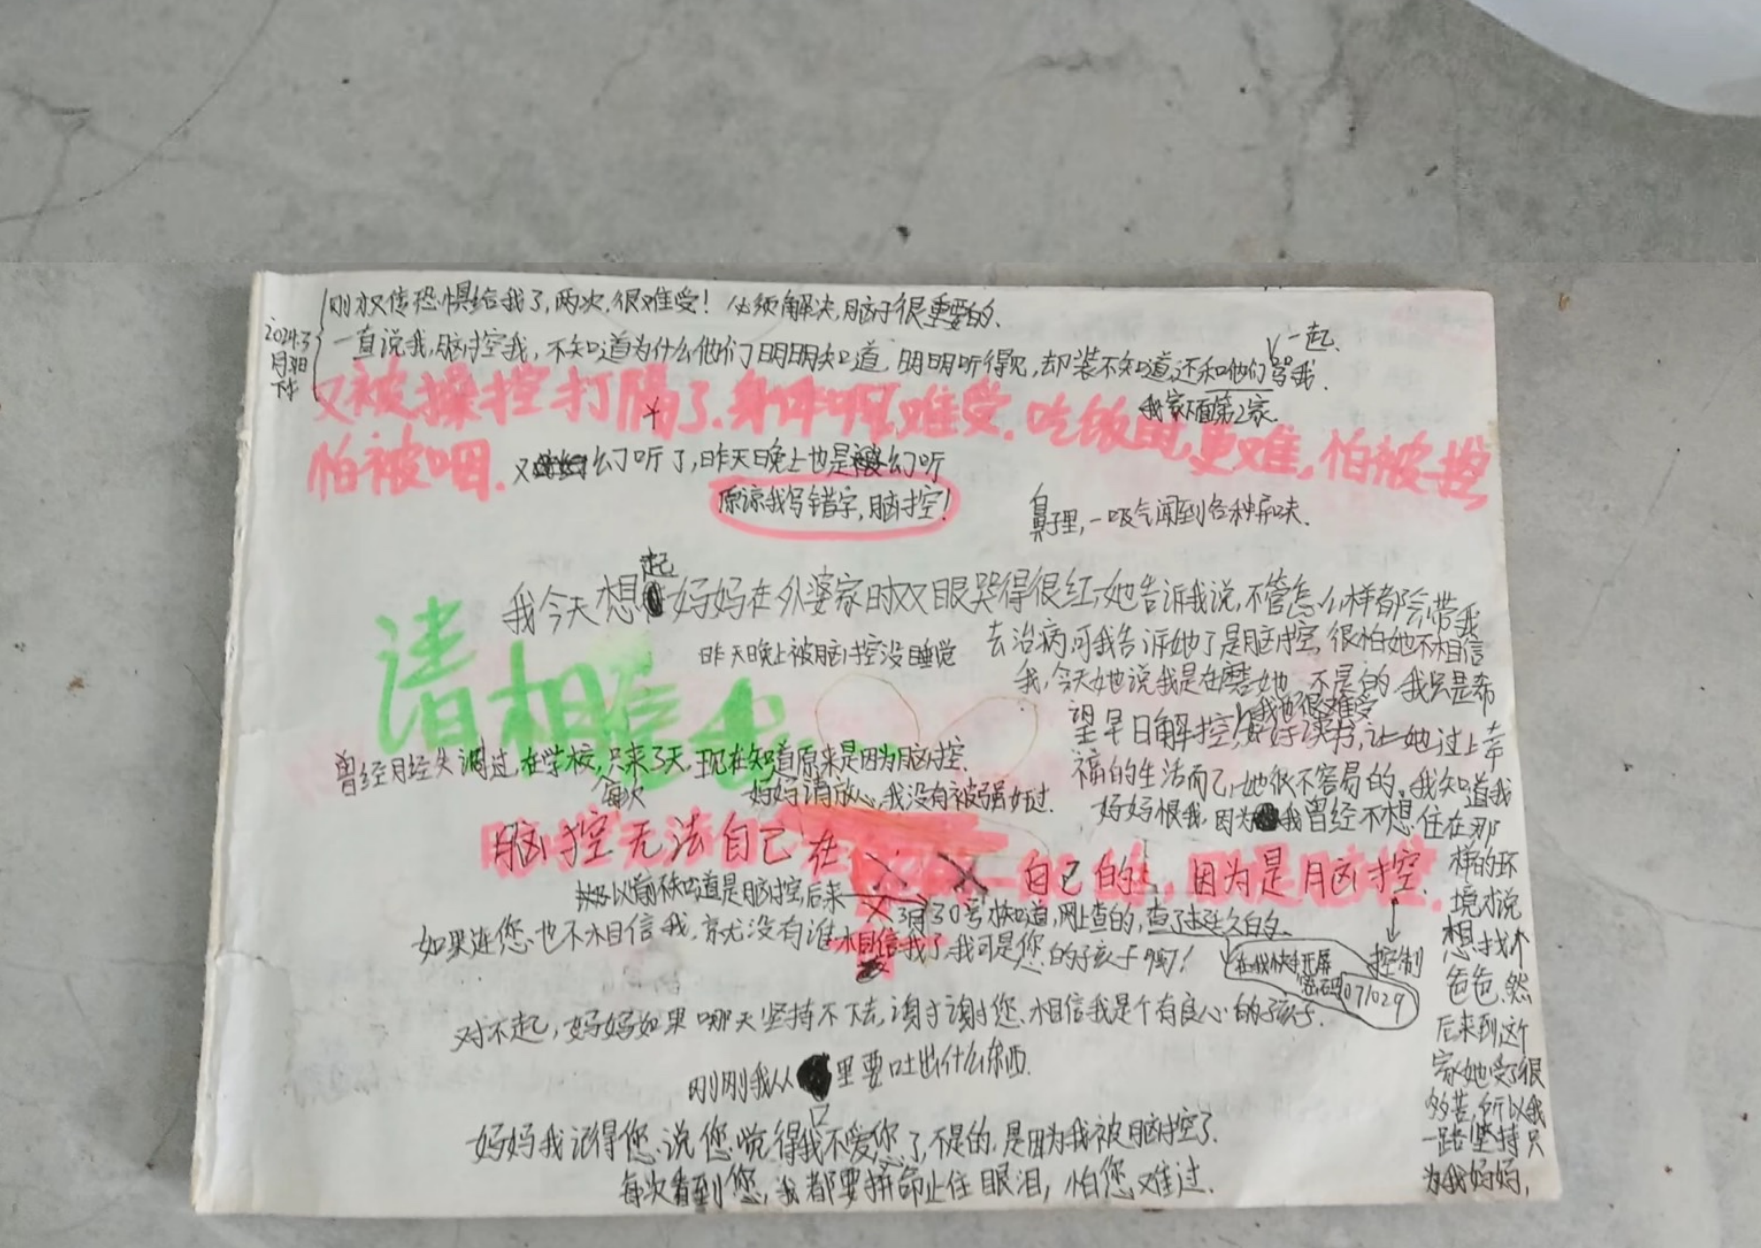 2024.3
月31日
下午
刚才又传恐惧给我了,两次,很难受!必须解决,脑子很重要的、
一直说我,脑控我,不知道为什么他们明明知道,明明听得见,却装不知道,还和他们一起骂我.
我家下面第2家.
又被操控打隔了.身体啊难受.吃饭时,更难,怕被控
怕被咽.
又幻听了,昨天晚上也是幻听
原谅我写错字,脑控!
鼻子里,一吸气闻到各种异味.
我今天想起妈妈在外婆家时双眼哭得很红,她告诉我说,不管怎么样都会带我
去治病,可我告诉她了是脑控,很怕她不相信
我,今天她说我是在磨她,不是的,我只是希
望早日解控,好好读书,让她过上幸
我也很难受
福的生活而已,她很不容易的。我知道我
妈妈恨我,因为我曾经不想住在那
样的环
境才说
想找个
爸爸.然
后来到这个
家她受了很
多苦,所以我
一路坚持只
为我妈妈,
昨天晚上被脑控没睡觉
请相信我
曾经月经失调过,在学校,每次只来3天,现在知道原来是因为脑控.
妈妈请放心,我没有被强奸过.
脑控无法自己在
自己的,因为是脑控.
以前不知道是脑控,后来
3月30号才知道,网上查的,查了挺久的.
控制
如果连您也不相信我,就没有谁相信我了.我可是您的孩子啊!
在我快手开屏
密码071029
对不起,妈妈如果哪天坚持不下去,谢谢您、相信我是个有良心的孩子.
刚刚我从口里要吐出什么东西.
妈妈我记得您说您觉得我不爱您了,不是的,是因为我被脑控了.
每次看到您,我都要拼命止住眼泪,怕您难过.